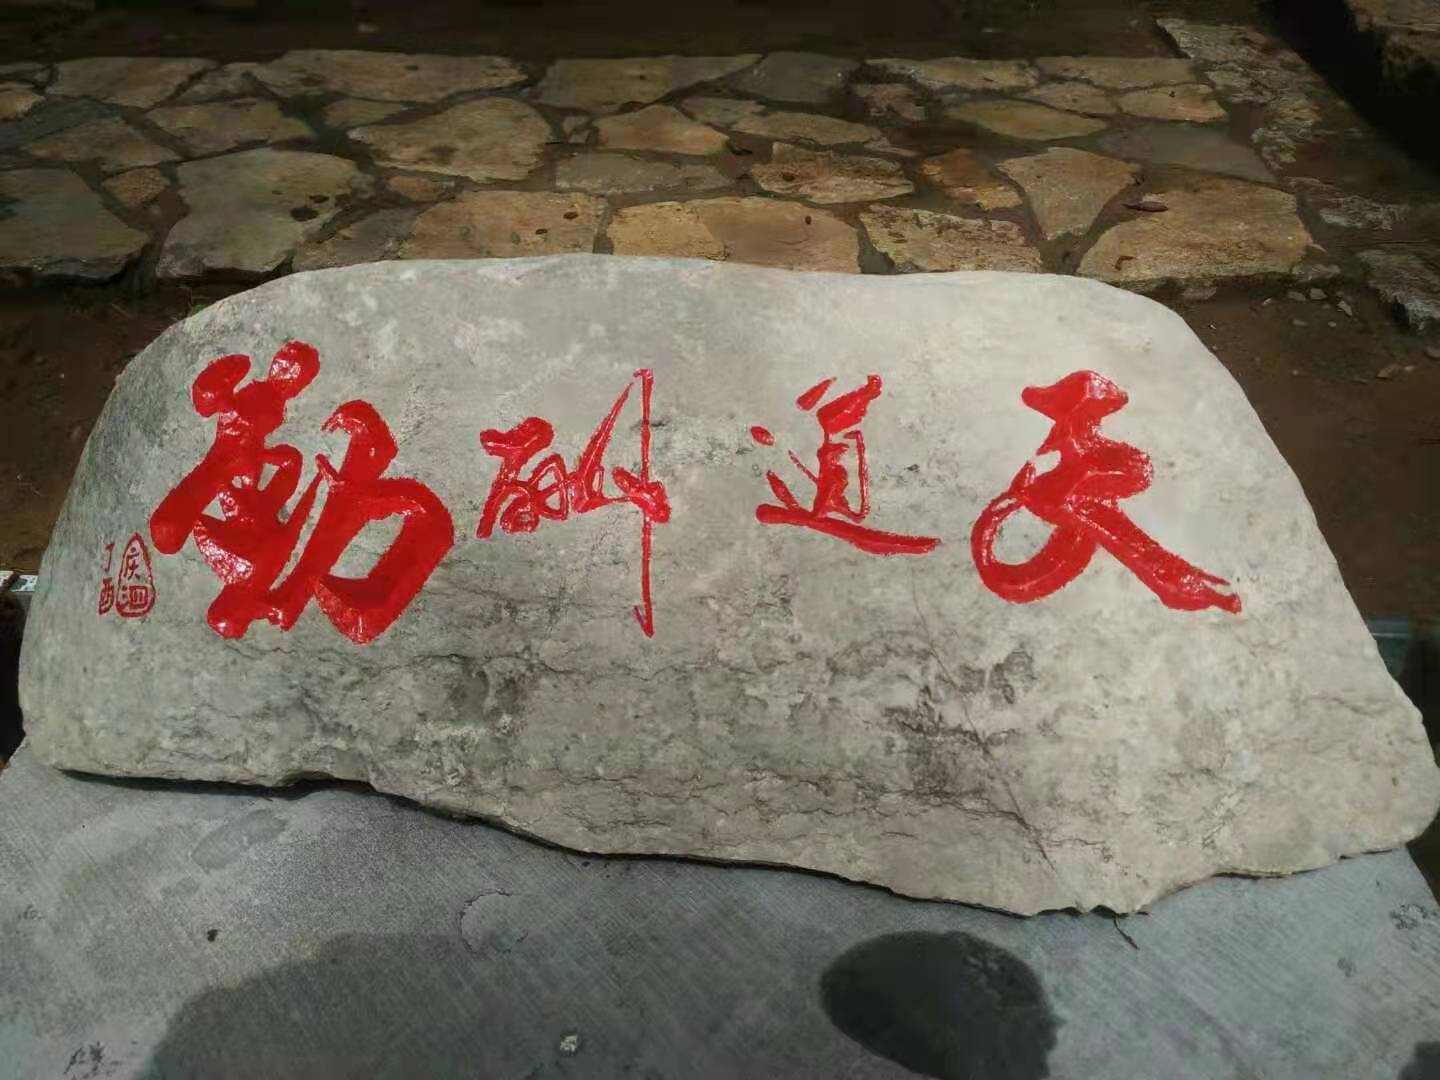 天道酬勤
丁酉
庆泗